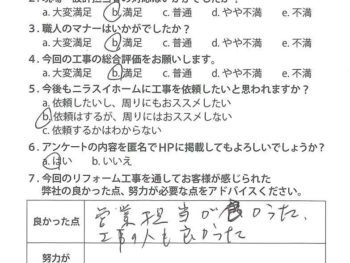 a. 大変満足 b. 満足 c. 普通 d. やや不満 e. 不満
3. 職人のマナーはいかがでしたか?
a. 大変満足 b. 満足 c. 普通 d. やや不満 e. 不満
4. 今回の工事の総合評価をお願いします。
a. 大変満足 b. 満足 c. 普通 d. やや不満 e. 不満
5. 今後もニラスイホームに工事を依頼したいと思われますか?
a. 依頼したいし、周りにもおススメしたい
b. 依頼はするが、周りにはおススメしない
c. 依頼するかはわからない
6. アンケートの内容を匿名でHPに掲載してもよろしいでしょうか?
a. はい b. いいえ
7. 今回のリフォーム工事を通してお客様が感じられた
弊社の良かった点、努力が必要な点をアドバイスください。
良かった点
営業担当が良かった、
工事の人も良かった
努力が